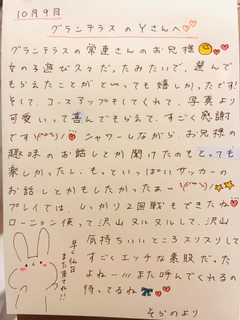 10月9日
グランテラスのYさんへ
グランテラスの常連さんのお兄様
女の子遊び久々だったみたいで、選んで
もらえたことがとっても嬉しかったです!
そして、コースアップもしてくれて、写真より
可愛いって喜んでもらえて、すごく感謝
です シャワーしながら、お兄様の
趣味のお話しとか聞けたのもとっても
楽しかったし、もっといっぱいサッカーの
お話しとかもしたかったぁー
プレイでは、しっかり2回戦もできたね
ローション使って沢山ヌルヌルして、沢山
気持ちいいところスリスリして
すごくエッチな素股だった
よね…!!!また呼んでくれるの
待ってるね
早く仙台
また来てね!!
そらのより